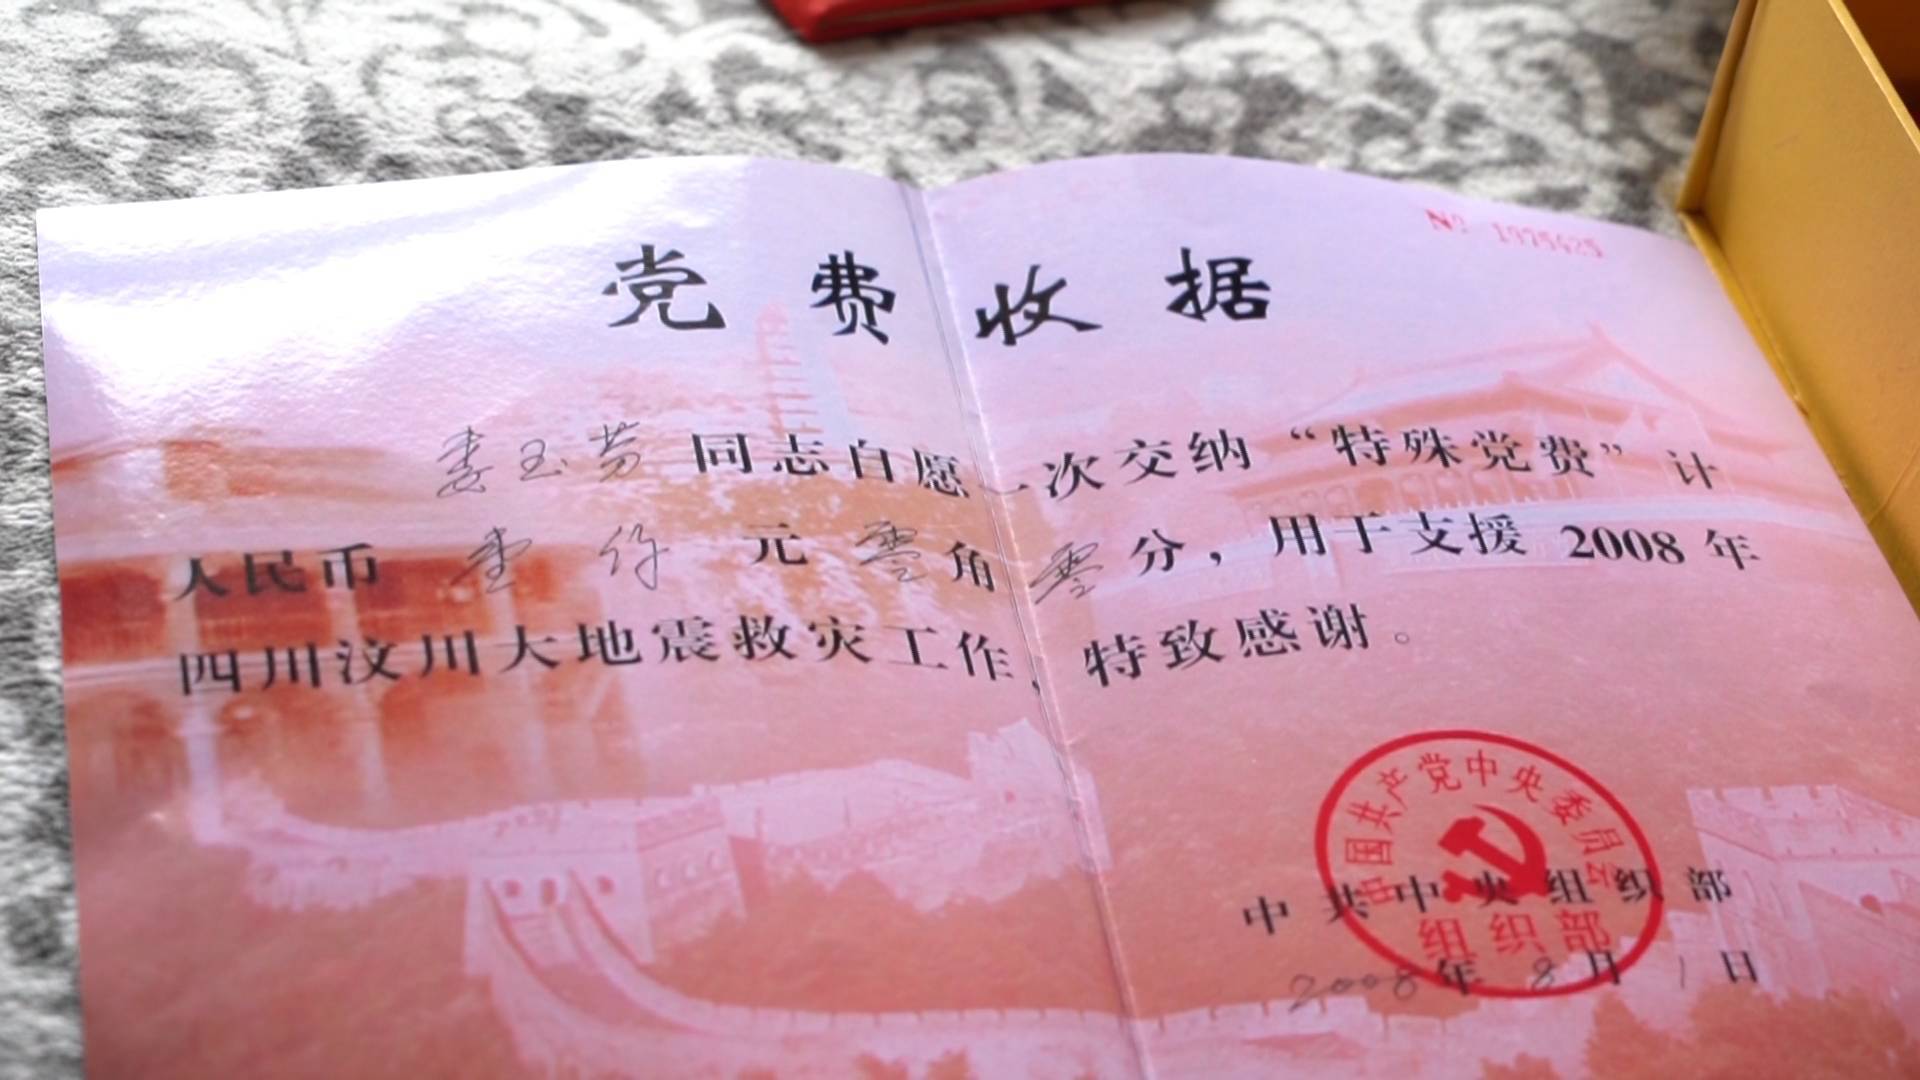 № 1975425
党费收据
娄玉芬同志自愿一次交纳“特殊党费”计
人民币 壹仟 元 零 角 零 分，用于支援 2008 年
四川汶川大地震救灾工作，特致感谢。
中国共产党中央委员会
组织部
中共中央组织部
2008年 8月 1日